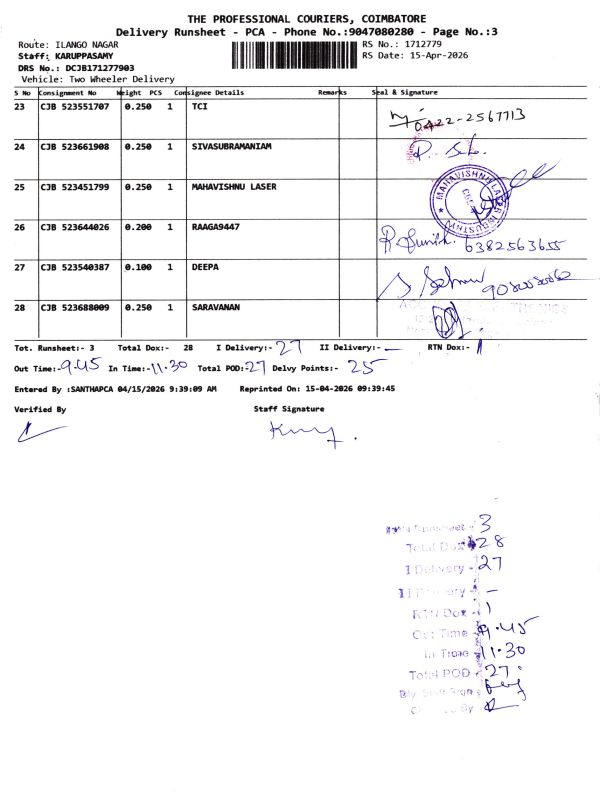 THE PROFESSIONAL COURIERS, COIMBATORE
Delivery Runsheet - PCA - Phone No.:9047080280 - Page No.:3
Route: ILANGO NAGAR RS No.: 1712779
Staff: KARUPPASAMY RS Date: 15-Apr-2026
DRS No.: DCJB171277903
Vehicle: Two Wheeler Delivery
S No Consignment No Weight PCS Consignee Details Remarks Seal & Signature
23 CJB 523551707 0.250 1 TCI 0422-2567713
24 CJB 523661908 0.250 1 SIVASUBRAMANIAM
25 CJB 523451799 0.250 1 MAHAVISHNU LASER
MAHAVISHNU LASER INDUSTRY
26 CJB 523644026 0.200 1 RAAGA9447 6382563655
27 CJB 523540387 0.100 1 DEEPA
28 CJB 523688009 0.250 1 SARAVANAN
Tot. Runsheet:- 3 Total Dox:- 28 I Delivery:- 27 II Delivery:- — RTN Dox:- 1
Out Time:- 9.45 In Time:- 11.30 Total POD:- 27 Delvy Points:- 25
Entered By :SANTHAPCA 04/15/2026 9:39:09 AM Reprinted On: 15-04-2026 09:39:45
Verified By Staff Signature
Runsheet - 3
Total Dox 28
I Delivery - 27
II Delivery - —
RTN Dox - 1
Out Time - 9.45
In Time 11.30
Total POD - 27